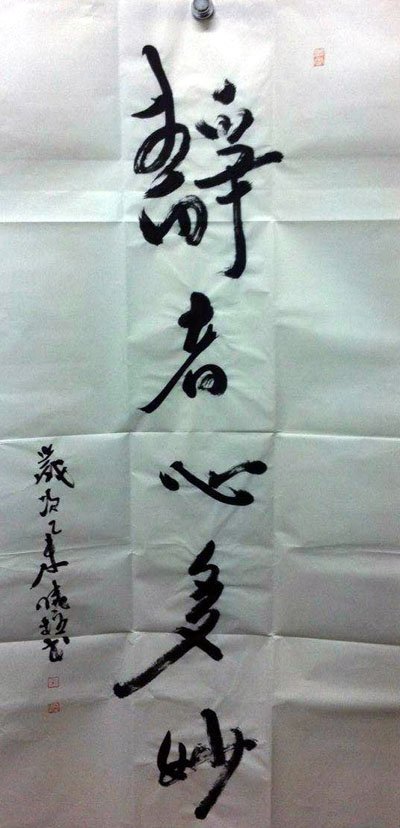 靜者心多妙
歲次乙未曉